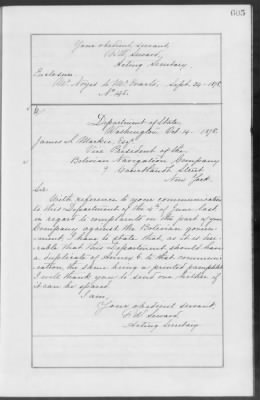 605
Your obedient servant,
F. W. Seward,
Acting Secretary.
Enclosure
Mr. Noyes to Mr. Evarts, Sept. 24-1878.
No. 45.
Department of State
Washington Oct. 14-1878.
James S. Mackie, Esqr
Vice President of the
Bolivian Navigation Company
9 Street
New York.
Sir:
With reference to your communication
to this Department of the 4th of June last
in regard to complaints on the part of your
Company against the Bolivian govern-
ment, I have to state that, as it is des-
irable that this Department should have
a duplicate of Annex C. to that commun-
ication, the same being a printed pamphlet
I will thank you to send one hither if
it can be spared.
I am,
Your obedient servant,
F. W. Seward
Acting Secretary